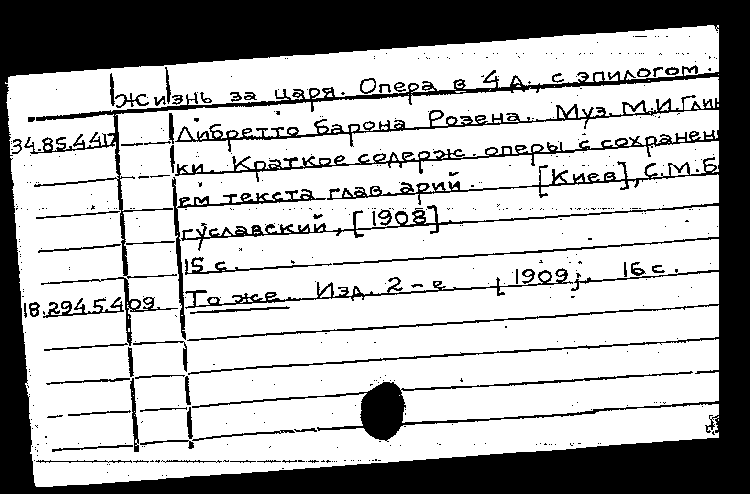 Жизнь за царя. Опера в 4 д., с эпилогом.
34.85.4.417 Либретто барона Розена. Муз. М.И.Глин
ки. Краткое содерж. оперы с сохранен
ем текста глав. арий. [Киев], С.М.Бо
гуславский, [1908].
15 с.
18.294.5.409 То же. Изд. 2-е. [1909]. 16 с.